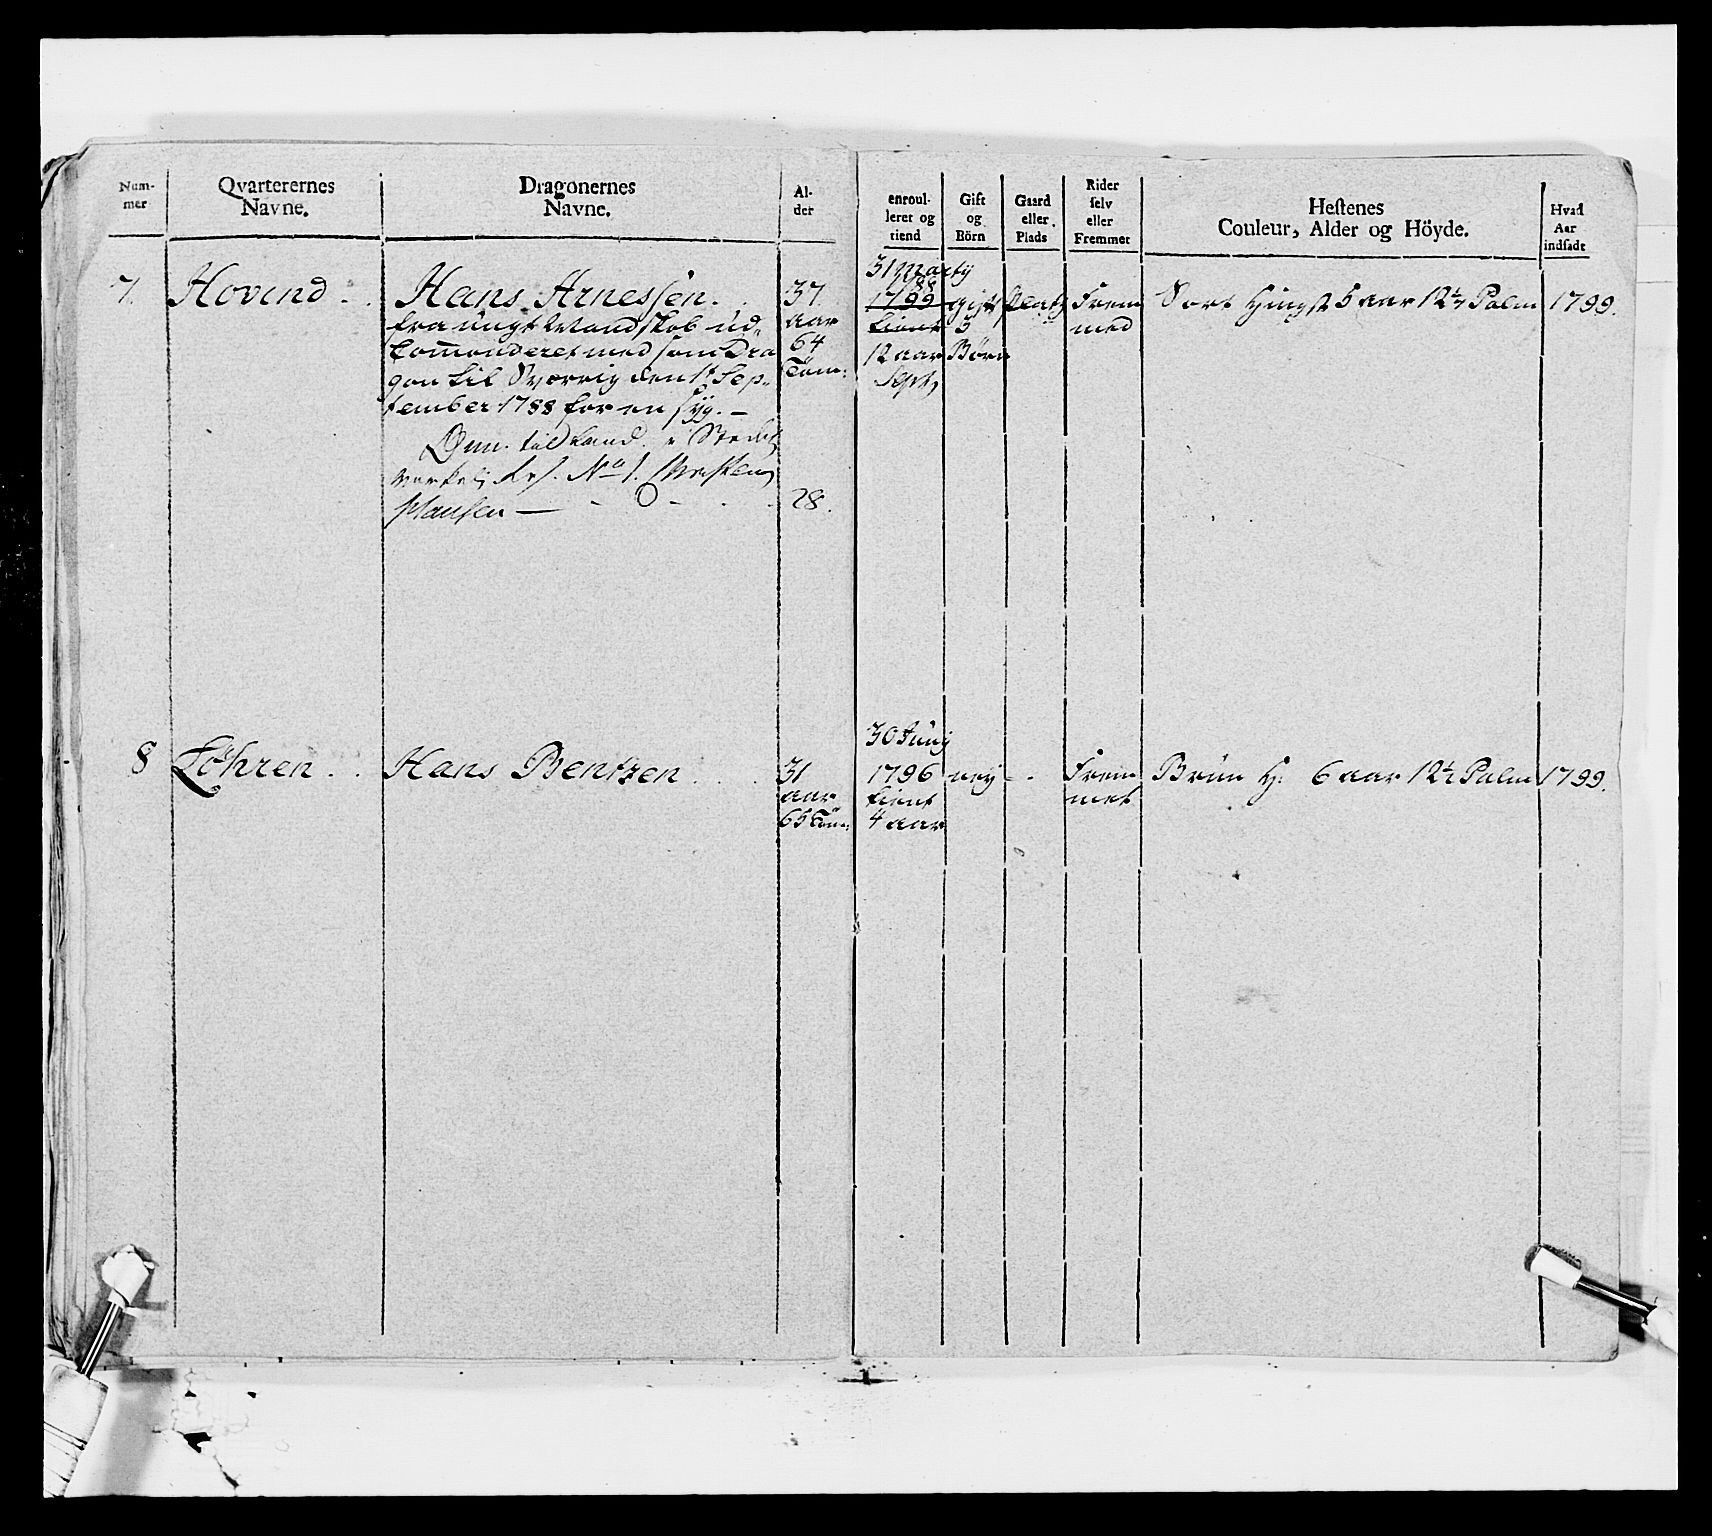 Num-
mer
Qvarterernes
Navne.
Dragonernes
Navne.
Al-
der
enroul-
leret og
tiend
Gift
og
Börn
Gaard
eller
Plads
Rider
selv
eller
Fremmet
Hestenes
Couleur, Alder og Höyde.
Hvad
Aar
indsadt
7.
Hovind
Hans Arnessen.
fra ungt Mandskab ud-
Comonderet med som Dra
gon til Sverrig den 1t Sep-
tember 1788 for en syg. -
til Land i Stedet
No 1.
Hansen
37
aar
64
Tom:
28.
31 Marty
1788
1799
tient
12 aar
Sept,
gift
3
Børn
Platz
Frem
med
Sort Hingst 5 aar 12½ Palm
1799.
8
Löhren
Hans Bentzen
31
aar
65 Tom:
30 Juny
1796
tient
4 aar
ney
-
Frem
met
Brun H: 6 aar 12½ Palm
1799.